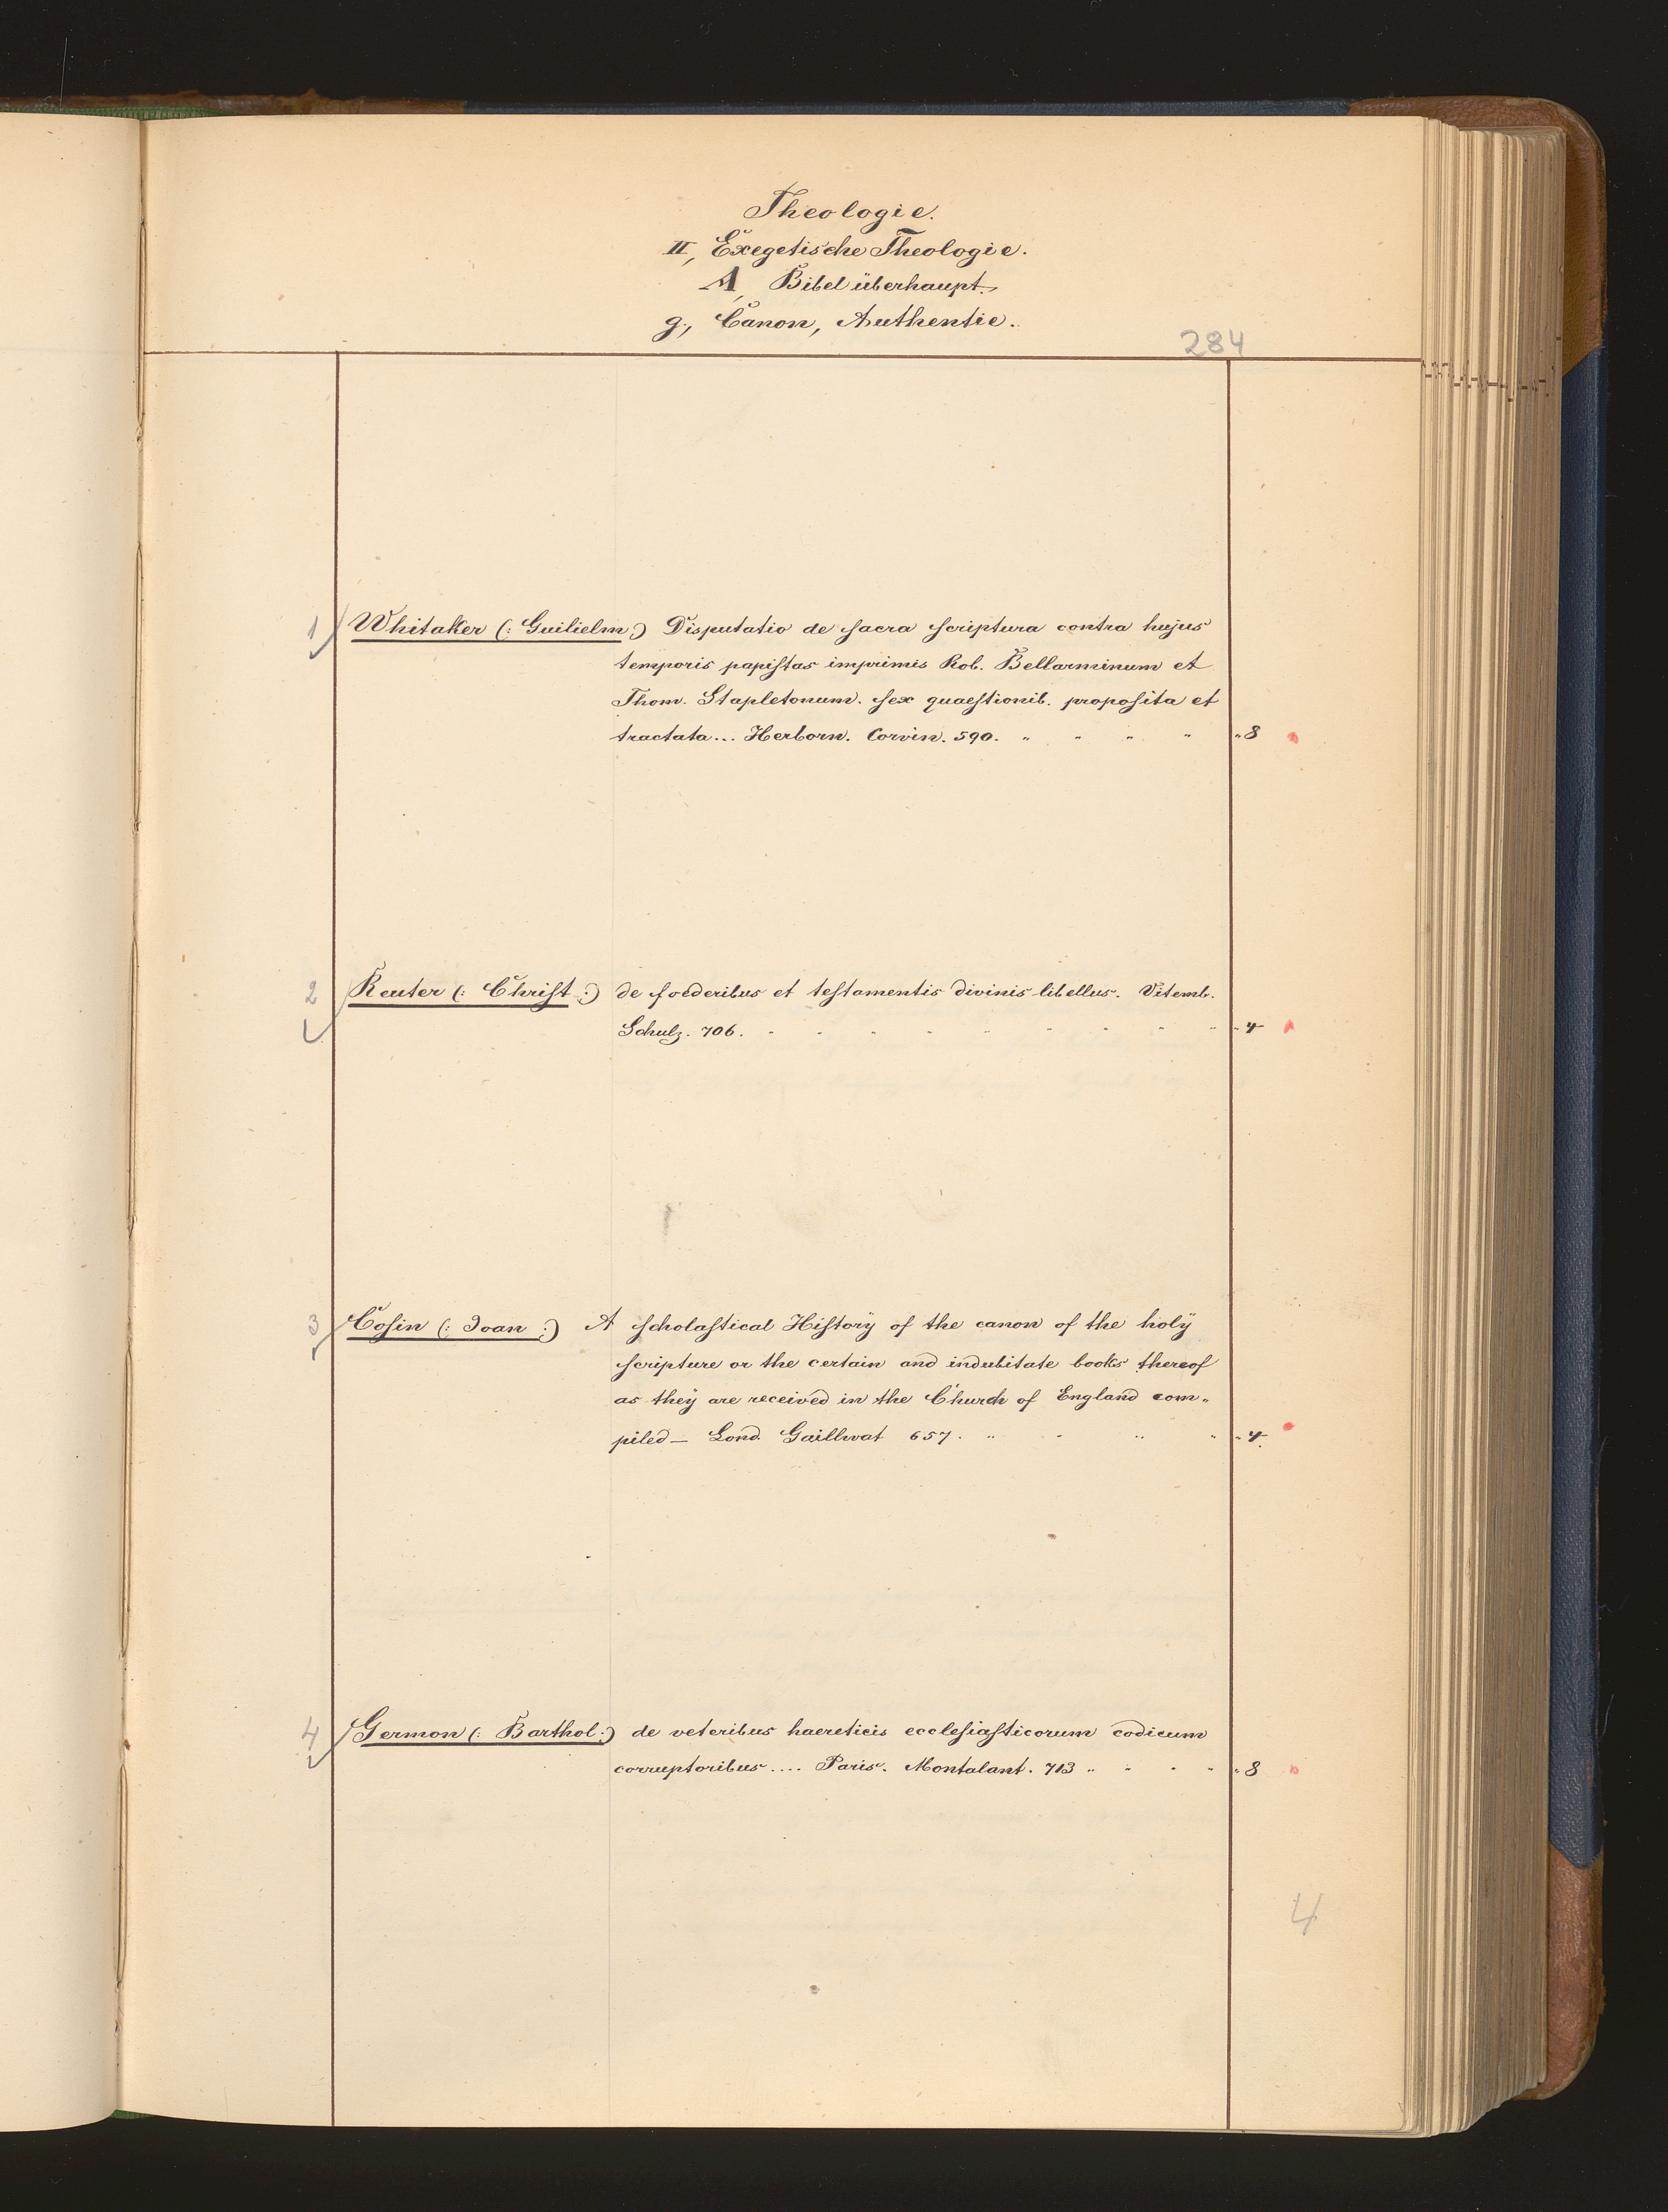 Theologie.
II, Exegetische Theologie.
A, Bibel überhaupt.
g., Canon, Authentie.
284
1 Whitaker (: Guilielm :) Disputatio de ſacra ſcriptura contra hujus
temporis papiſtas imprimis Rob. Bellarminum et
Thom. Stapletonum. ſex quaeſtionib. propoſita et
tractata... Herborn. Corvin. 590. " " " " " 8
2 Reuter (: Chriſt :) de foederibus et teſtamentis divinis libellus. Vitemb.
Schulz. 706. " " " " " " " " " " 4
3 Coſin (: Joan :) A ſcholaſtical Hiſtory of the canon of the holy
ſcripture or the certain and indubitate books thereof
as they are received in the Church of England com„
piled — Lond. Gaillwat 657. " " " " " 4.
4 Germon (: Barthol :) de veteribus haereticis eccleſiaſticorum codicum
corruptoribus .... Paris. Montalant. 713 " " " " " 8
4